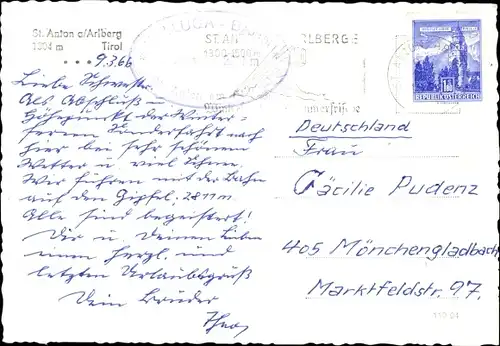 St. Anton a/Arlberg
1304 m Tirol
9.3.66
Liebe Schwester
Als Abschluß u.
Höhepunkt der Winter-
ferien Sonderfahrt nach
hier bei sehr schönem
Wetter u. viel Schnee.
Wir fuhren mit der Bahn
auf den Gipfel. 2811 m
Alle sind begeistert!
Dir u. Deinen Lieben
einen herzl. und
letzten Urlaubsgruß
Dein Bruder
Theo
ST. AN RLBERGE
1300-
merfrische
REPUBLIK ÖSTERREICH
Deutschland
Frau
Cäcilie Pudenz
405 Mönchengladbach
Marktfeldstr. 97.